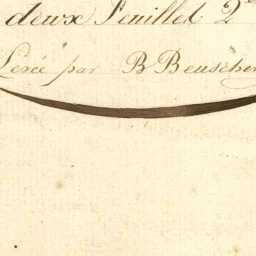 deux Feuillet 2
Levée par B Beuscher